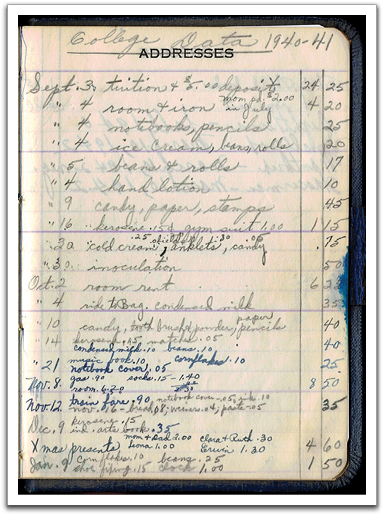 College Data 1940-41
ADDRESSES
Sept. 3, tuition & $5.00 deposit 24 25
" 4 room & iron mom pd. $2.00 in July 4 20
" 4 notebooks, pencils 25
" 4 ice cream, beans, rolls 20
" 5 beans & rolls 17
" 6 hand lotion 10
" 9 candy, paper, stamps 45
" 16 kerosine .15 & gym suit 1.00 1 15
.25 .30 .05
" 20 cold cream, anklets, candy .75
" 30 inoculation 50
Oct. 2 room rent 6 20
" 4 ride to Bag. condensed milk 35
" 10 candy, tooth brush & powder, pencils paper 40
" 14 kerosene .15 matches .05
condensed milk .10 beans .10 40
" 21 music book .10 cornflakes .10
notebook cover .05 25
Nov. 8. gas .90 socks .15 - 1.40
room 6.20 8 50
Nov. 12 train fare .90, notebook cover .05, ink .10
nov. .16 - brush 08, .04, paste .05 35
Dec. 9 kerosine .15
ind. arts book .35
Xmas presents mom & dad 2.00 Clara & Ruth .30
Lena 1.00 Erwin 1.30 4 60
Jan. 9 corn flakes .10 beans .25
shoe fixing .15 clock 1.00 1 50